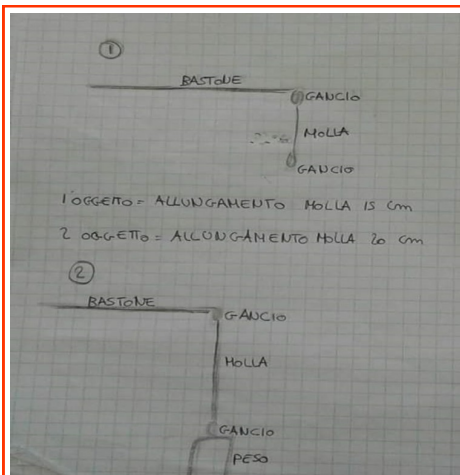 1
BASTONE
GANCIO
MOLLA
GANCIO
1 OGGETTO = ALLUNGAMENTO MOLLA 15 cm
2 OGGETTO = ALLUNGAMENTO MOLLA 20 cm
2
BASTONE
GANCIO
MOLLA
GANCIO
PESO